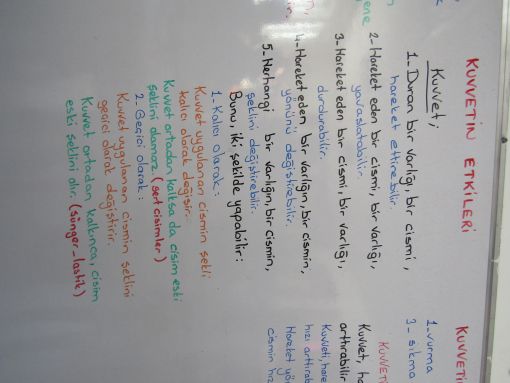 KUVVETİN ETKİLERİ
Kuvvet;
1- Duran bir varlığı, bir cismi,
hareket ettirebilir.
2- Hareket eden bir cismi, bir varlığı,
yavaşlatabilir.
3- Hareket eden bir cismi, bir varlığı,
durdurabilir.
4- Hareket eden, bir varlığın, bir cismin,
yönünü değiştirebilir.
5- Herhangi bir varlığın, bir cismin,
şeklini değiştirebilir.
Bunu, iki şekilde yapabilir:
1- Kalıcı olarak:
Kuvvet uygulanan cismin şekli
kalıcı olarak değişir.
Kuvvet ortadan kalksa da cisim eski
şeklini alamaz. (sert cisimler)
2- Geçici olarak:
Kuvvet uygulanan cismin şeklini
geçici olarak değiştirir.
Kuvvet ortadan kalkınca, cisim
eski şeklini alır. (sünger-lastik)
KUVVETİ
1- vurma
3- sıkma
KUVVETİ
Kuvvet, ha
arttırabilir
Kuvveti, hare
hızı arttırab
Hareket yön
cismin hız